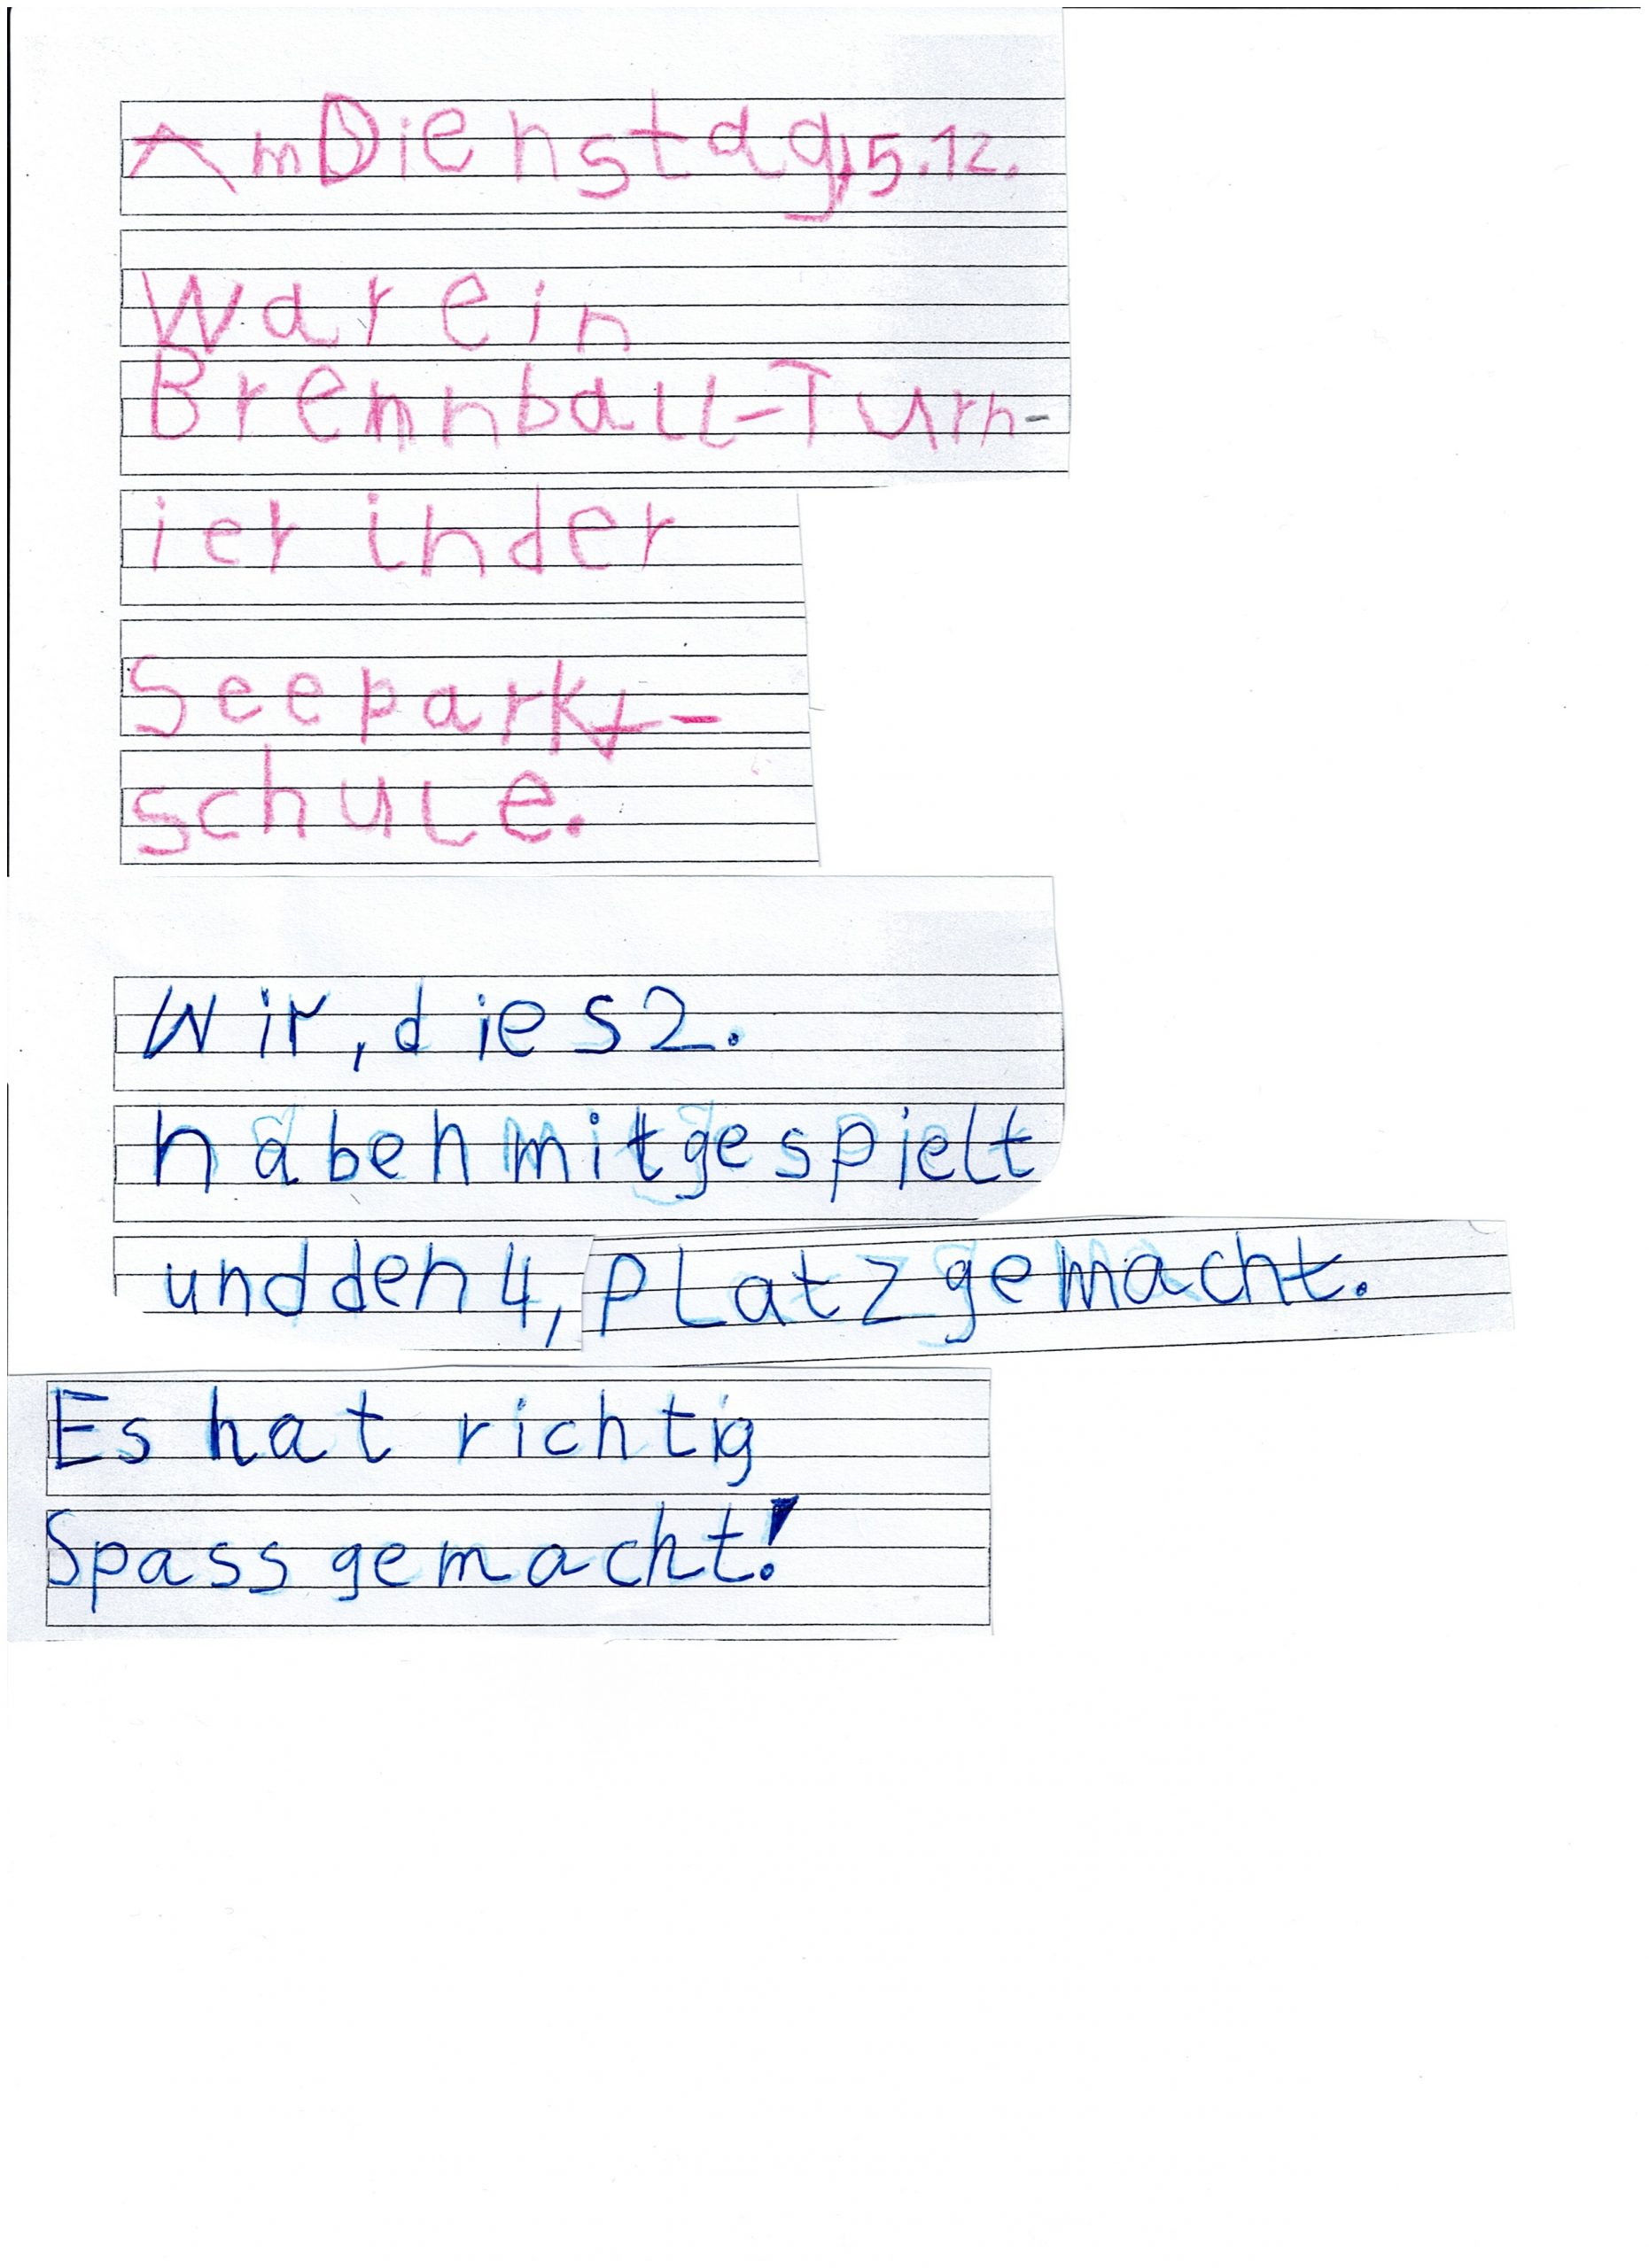 Am Dienstag, 5.12.
War ein
Brennball-Turn-
ier in der
Seepark-
schule.
Wir, die S2.
haben mitgespielt
und den 4, Platz gemacht.
Es hat richtig
Spass gemacht!